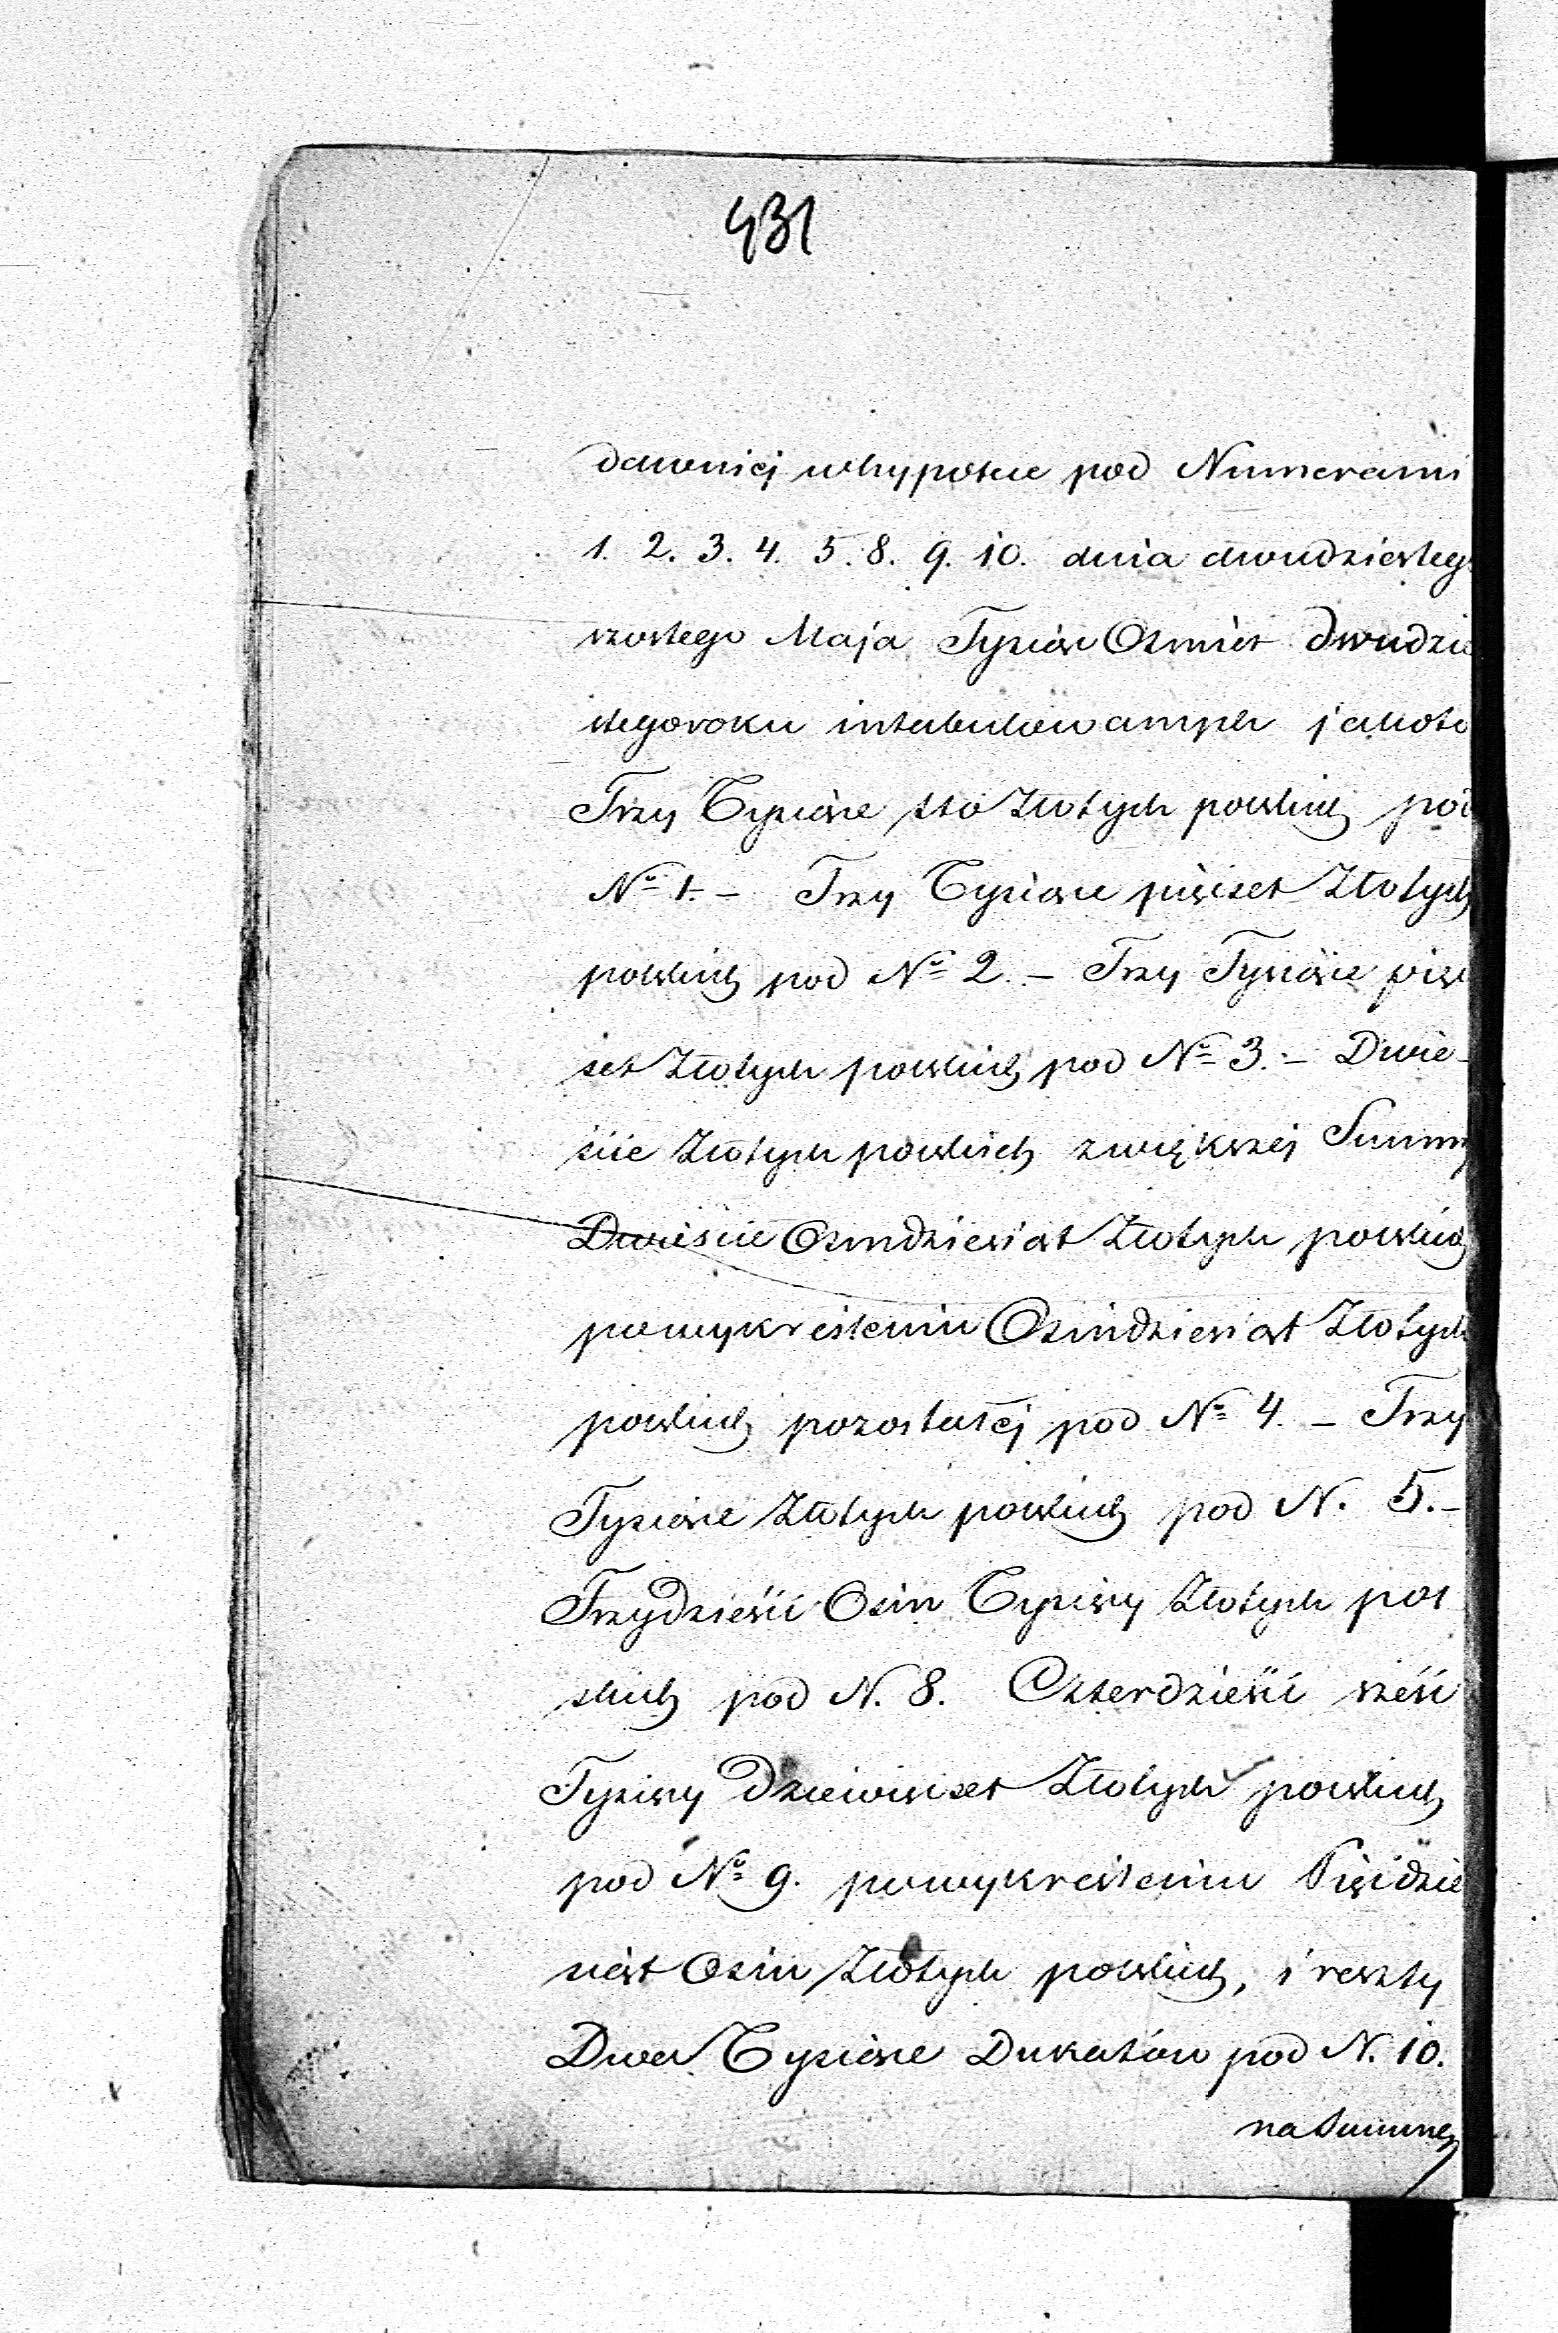 431
dawniej w hypotece pod Numerami
1. 2. 3. 4. 5. 8. 9. 10. dnia dwudziesteg
szostego Maja Tysiąc Osmset dwudzie
stego roku intabulowanych jakoto
Trzy Tysiące sto Złotych polskich pod
No 1. – Trzy Tysiące pięcset Złotych
polskich pod No 2. – Trzy Tysiące pięc
set Złotych polskich pod No 3. – Dwie-
scie Złotych polskich z większej Summy
Dwiescie Osmdziesiąt Złotych polskich
po wykresleniu Osmdziesiąt Złotych
polskich pozostałej pod No 4. – Trzy
Tysiące Złotych polskich pod N. 5. –
Trzydzieści Osm Tysięcy Złotych pol
skich pod N. 8. Czterdzieści sześć
Tysięcy Dziewięcset Złotych polskich
pod No 9. po wykresleniu Pięcdzie
siąt Osm Złotych polskich, i reszty
Dwa Tysiące Dukatów pod N. 10.
na Summę